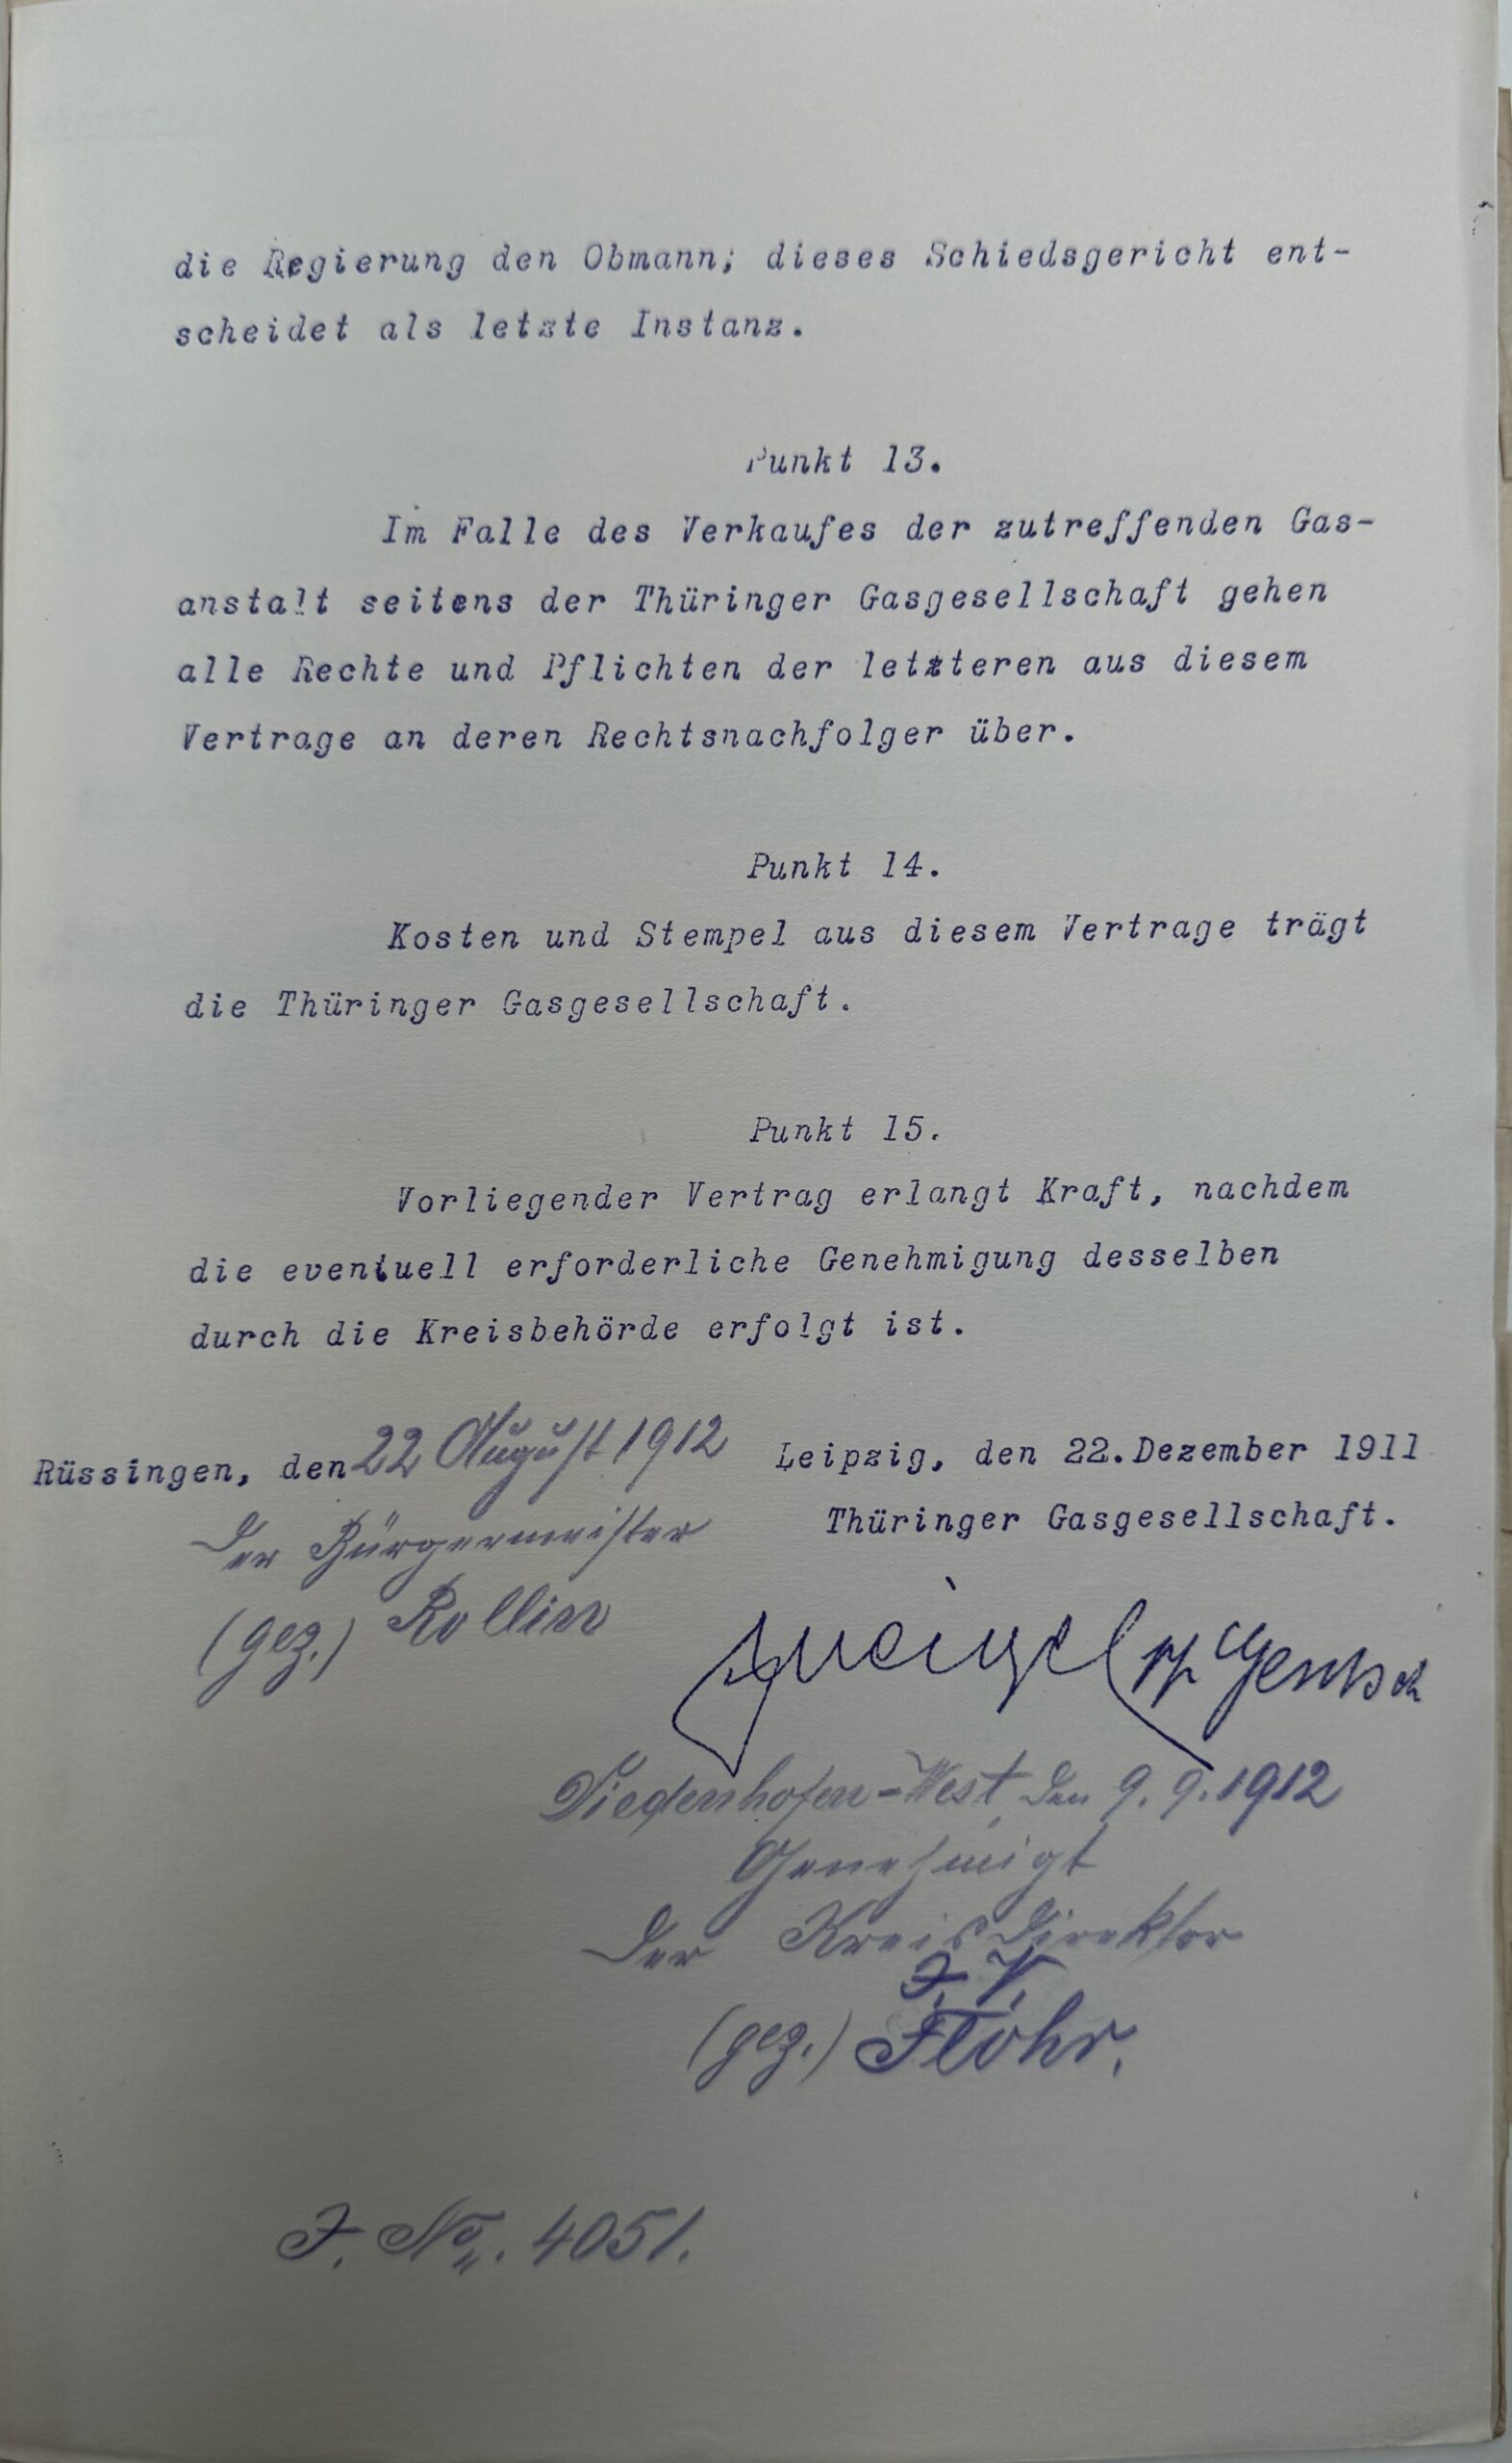 die Regierung den Obmann; dieses Schiedsgericht ent-
scheidet als letzte Instanz.
Punkt 13.
Im Falle des Verkaufes der zutreffenden Gas-
anstalt seitens der Thüringer Gasgesellschaft gehen
alle Rechte und Pflichten der letzteren aus diesem
Vertrage an deren Rechtsnachfolger über.
Punkt 14.
Kosten und Stempel aus diesem Vertrage trägt
die Thüringer Gasgesellschaft.
Punkt 15.
Vorliegender Vertrag erlangt Kraft, nachdem
die eventuell erforderliche Genehmigung desselben
durch die Kreisbehörde erfolgt ist.
Rüssingen, den 22 August 1912
Der Bürgermeister
(gez.) Rollin
Leipzig, den 22.Dezember 1911
Thüringer Gasgesellschaft.
Gentsch
Diedenhofen-West, den 9. 9. 1912
Genehmigt
Der Kreisdirektor
J. V.
(gez.) Flöhr.
J. No. 4051.